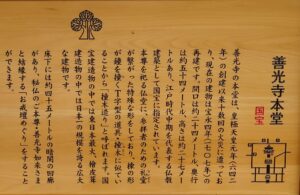 善光寺本堂
国宝
善光寺の本堂は、皇極天皇元年(六四二
年)の創建以来十数回の火災に遭ってお
り、現在の建物は宝永四年(一七〇七年)の
再建です。間口は約二十四メートル、奥行
は約五十四メートル、高さは約二十七メー
トルあり、江戸時代中期を代表する仏教
建築として国宝に指定されています。
本尊を祀る仏堂に、参拝者のための礼堂
が繋がった特殊な形をしており、棟の形
が鐘を撞く丁字型の道具・撞木に似てい
ることから「撞木造り」と呼ばれます。国
宝建造物の中では東日本最大、檜皮葺
建造物の中では日本一の規模を誇る広大
な建物です。
床下には約四十五メートルの暗闇の回廊
があり、秘仏のご本尊・善光寺如来さま
と結縁する「お戒壇めぐり」をすること
ができます。